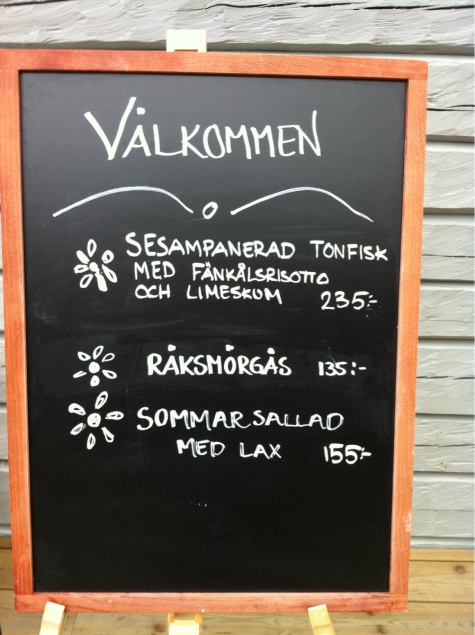 VÄLKOMMEN
SESAMPANERAD TONFISK
MED FÄNKÅLSRISOTTO
OCH LIMESKUM 235:-
RÄKSMÖRGÅS 135:-
SOMMARSALLAD
MED LAX 155:-